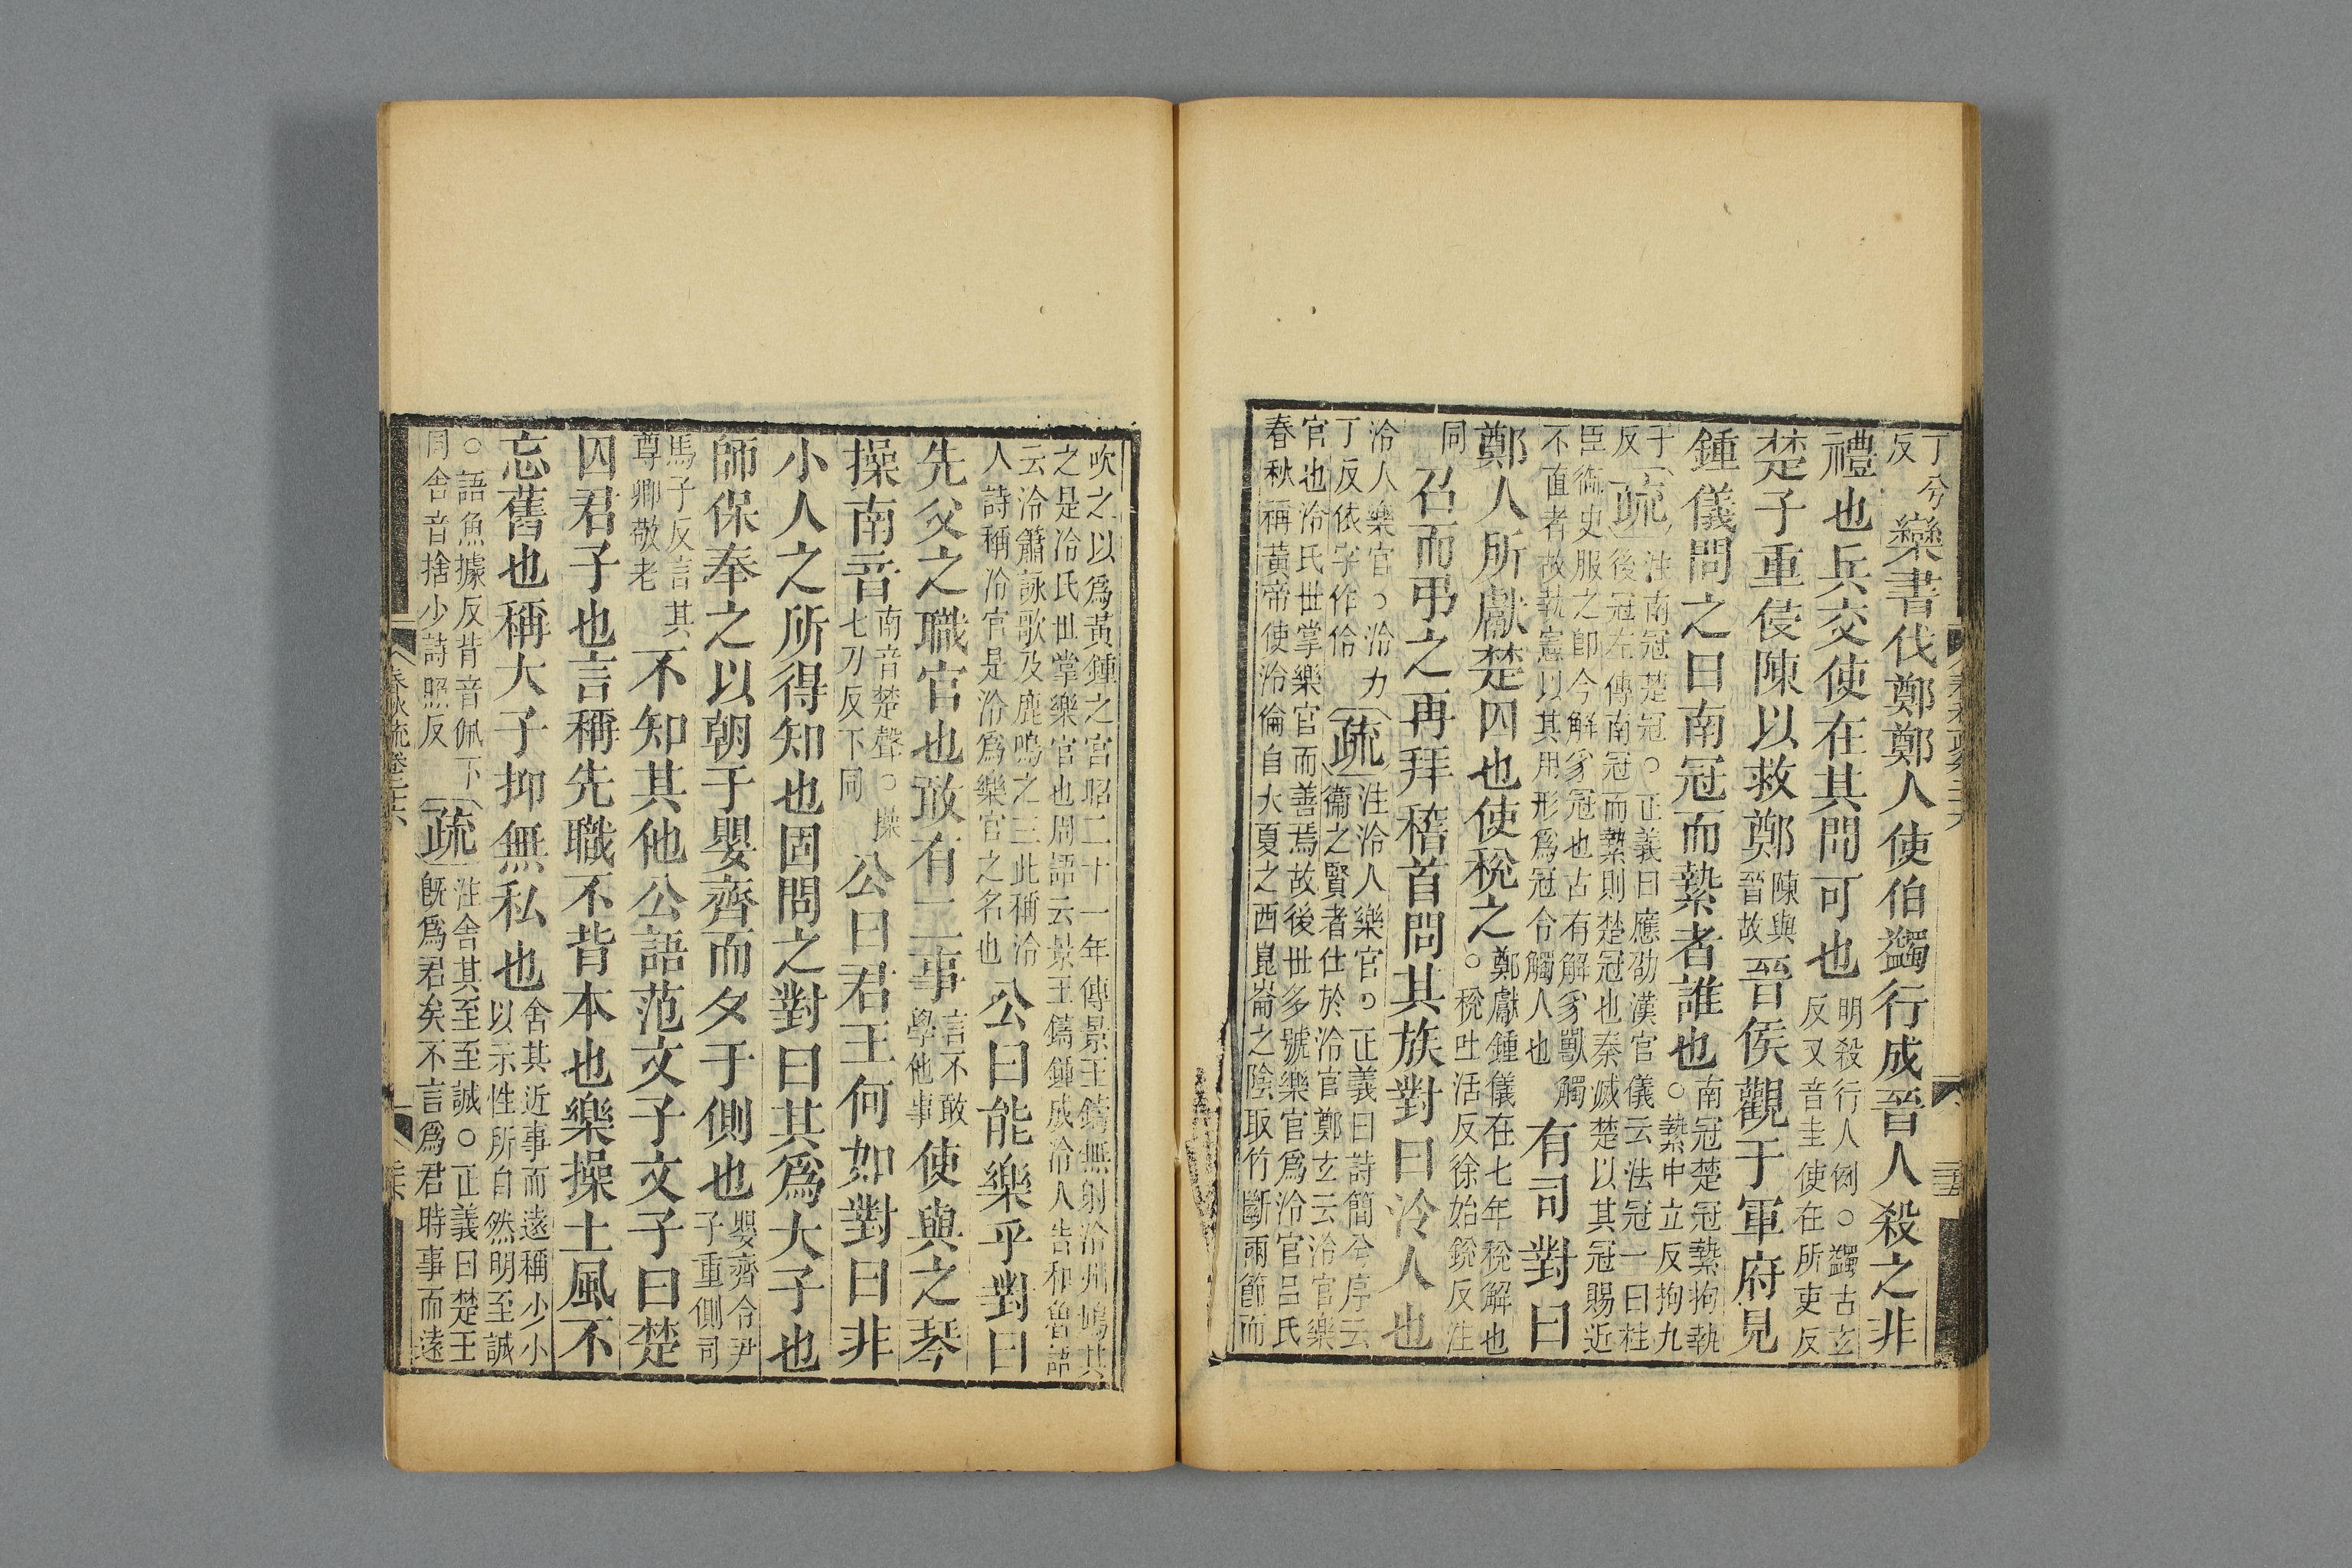 丁兮
反
欒書伐鄭鄭人使伯蠲行成晉人殺之非
禮也兵交使在其間可也
明殺行人例○蠲古玄
反又音圭使在所吏反
楚子重侵陳以救鄭
陳與
晉故
晉侯觀于軍府見
鍾儀問之曰南冠而縶者誰也
南冠楚冠縶拘執
○縶中立反拘九
于
反
疏
注南冠楚冠○正義曰應劭漢官儀云法冠一曰柱
後冠左傳南冠而縶則楚冠也秦滅楚以其冠賜近
臣御史服之即今解豸冠也古有解豸獸觸
不直者故執憲以其用形爲冠令觸人也
有司對曰
鄭人所獻楚囚也使稅之
鄭獻鍾儀在七年稅解也
○稅吐活反徐始銳反注
同
召而弔之再拜稽首問其族對曰泠人也
泠人樂官○泠力
丁反依字作伶
疏
注泠人樂官○正義曰詩簡兮序云
衞之賢者仕於泠官鄭玄云泠官樂
官也泠氏世掌樂官而善焉故後世多號樂官爲泠官呂氏
春秋稱黃帝使泠倫自大夏之西崑崙之陰取竹斷兩節而
吹之以爲黃鍾之宮昭二十一年傳景王鑄無射泠州鳩其
之是泠氏世掌樂官也周語云景王鑄鍾成泠人告和魯語
云泠簫詠歌及鹿鳴之三此稱泠
人詩稱泠官是泠爲樂官之名也
公曰能樂乎對曰
先父之職官也敢有二事
言不敢
學他事
使與之琴
操南音
南音楚聲○操
七刀反下同
公曰君王何如對曰非
小人之所得知也固問之對曰其爲大子也
師保奉之以朝于嬰齊而夕于側也
嬰齊令尹
子重側司
馬子反言其
尊卿敬老
不知其他公語范文子文子曰楚
囚君子也言稱先職不背本也樂操土風不
忘舊也稱大子抑無私也
舍其近事而遠稱少小
以示性所自然明至誠
○語魚據反背音佩下
同舍音捨少詩照反
疏
注舍其至至誠○正義曰楚王
旣爲君矣不言爲君時事而遠
春秋疏卷二十六